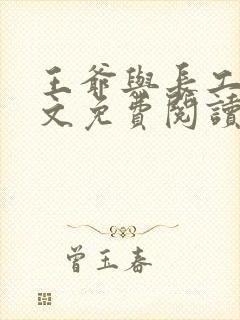 王爺與長工
文免費閱讀
曾玉春